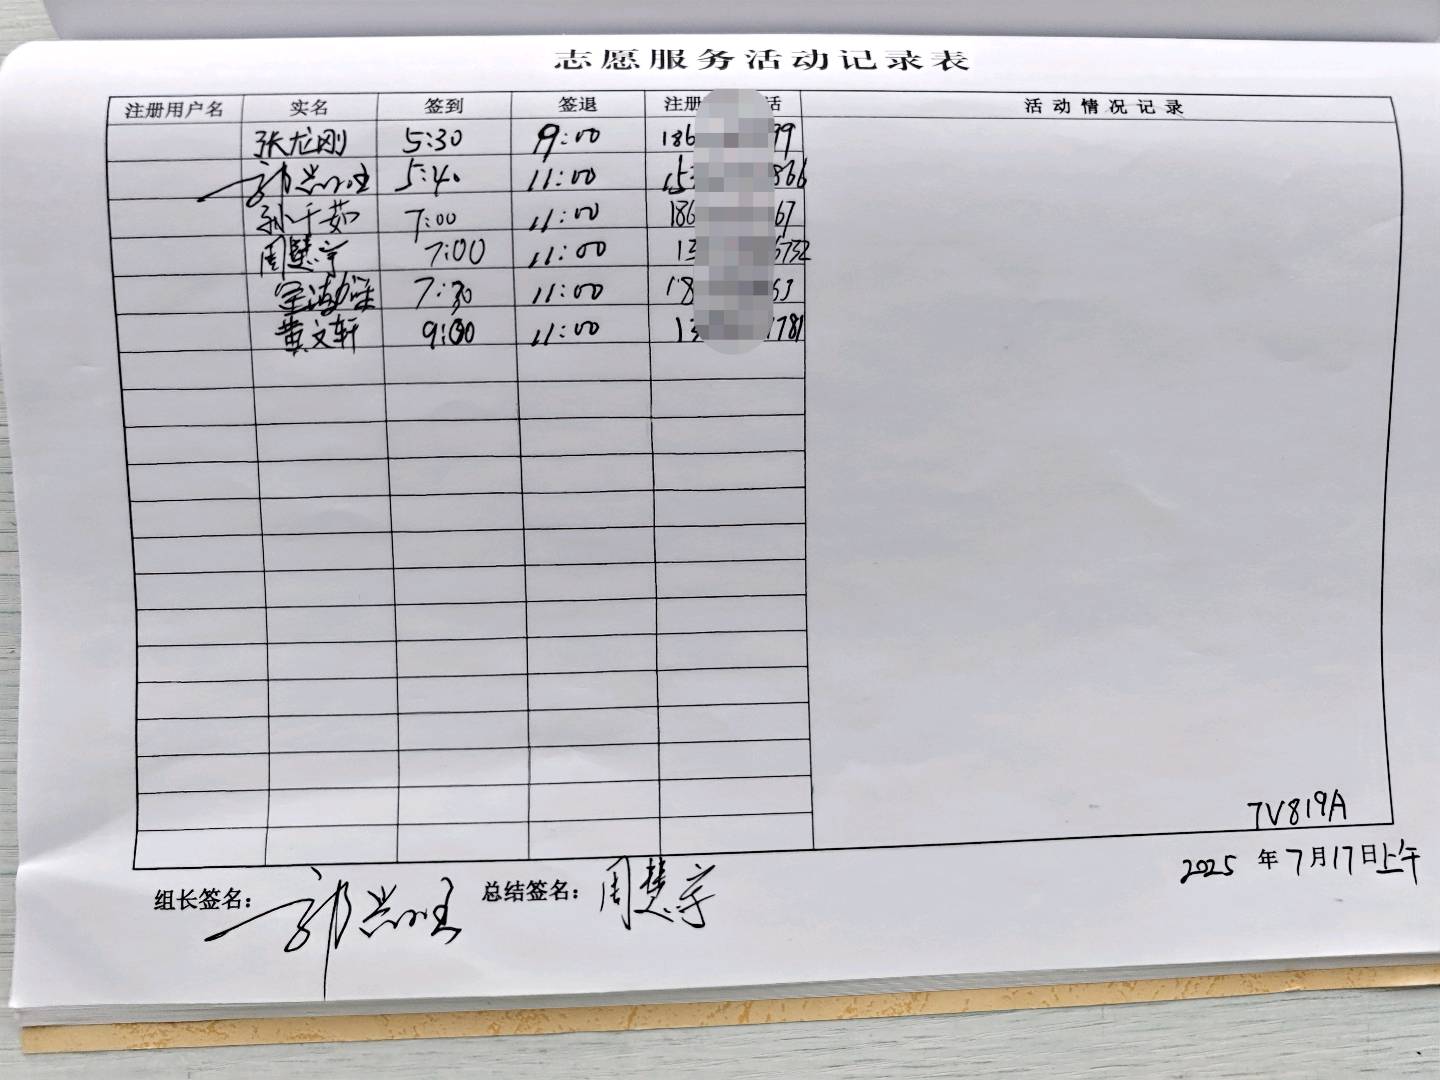 志愿服务活动记录表
注册用户名 实名 签到 签退 注册 话 活动情况记录
张龙刚 5:30 9:00 186 99
郭 5:40 11:00 15 866
孙千茹 7:00 11:00 186 67
周慧宇 7:00 11:00 13 5732
7:30 11:00 18 63
黄文轩 9:00 11:00 13 1781
TV819A
2025年7月17日上午
组长签名: 郭 总结签名: 周慧宇